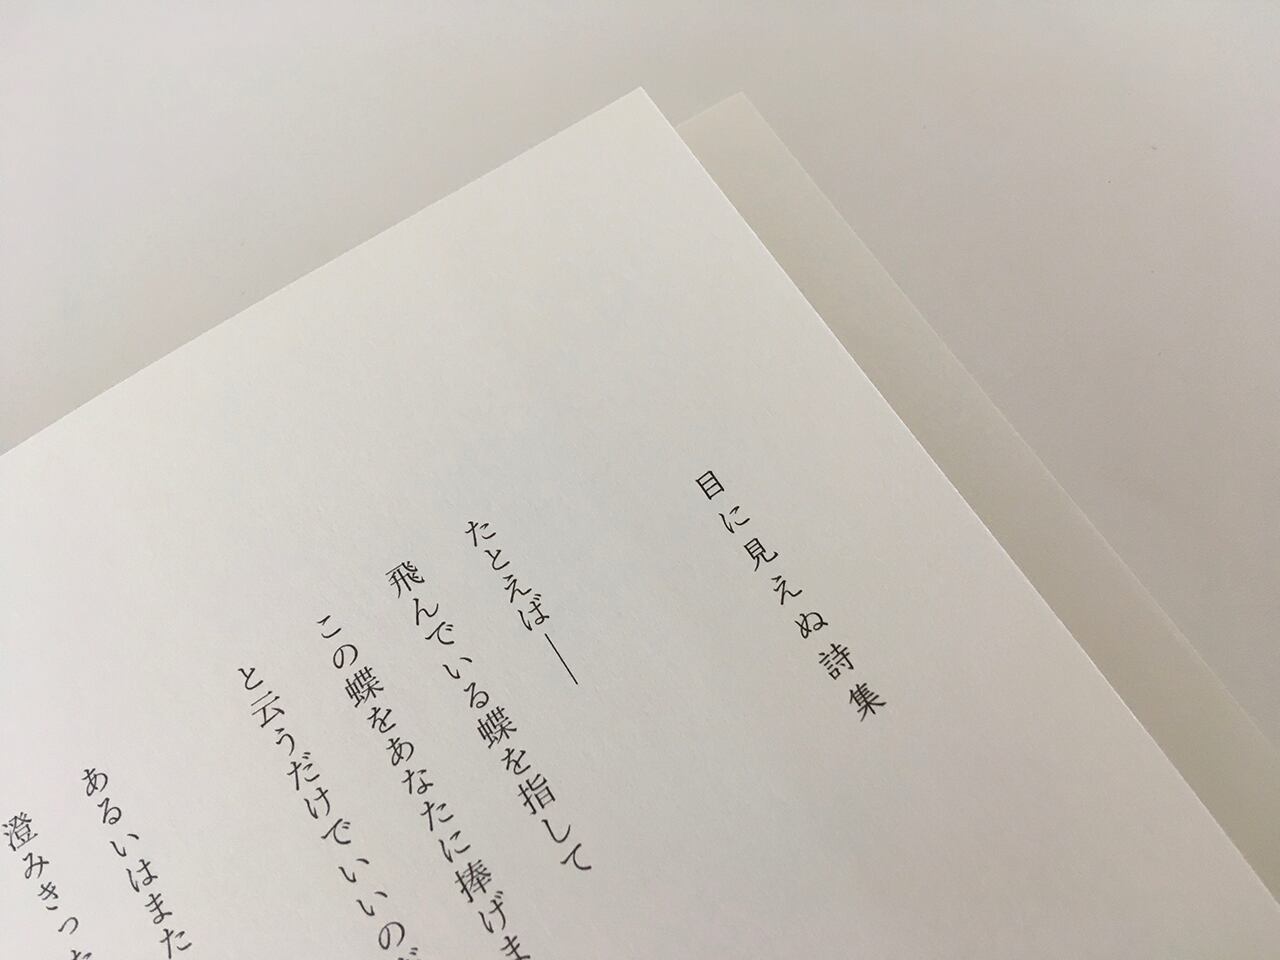 目に見えぬ詩集
たとえば──
飛んでいる蝶を指して
この蝶をあなたに捧げま
と云うだけでいいのだ
あるいはまた
澄みきった